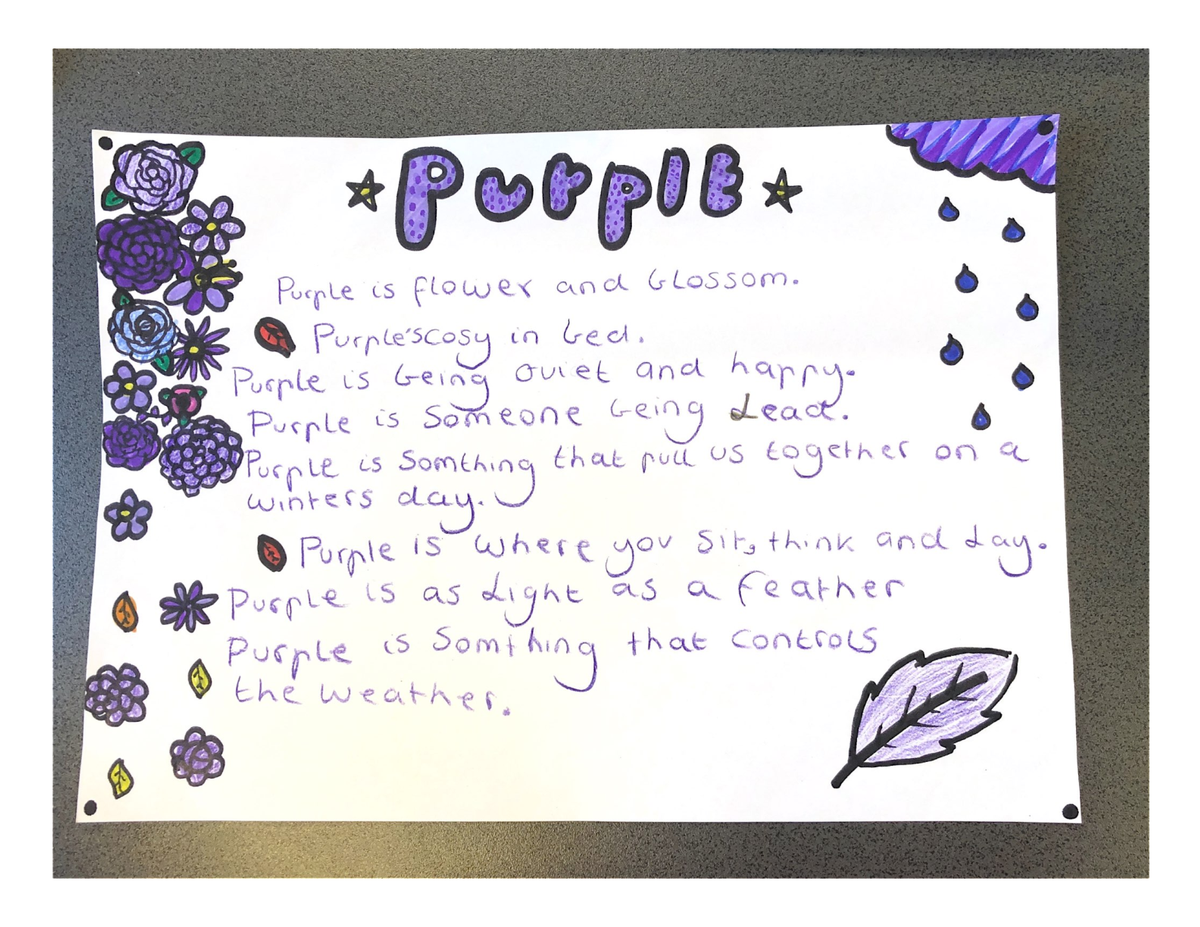 Purple
Purple is flower and blossom.
Purple'scosy in bed.
Purple is being quiet and happy.
Purple is someone being dead.
Purple is Somthing that pull us together on a
winters day.
Purple is where you sit, think and lay.
Purple is as light as a feather
Purple is Somthing that controls
the weather.